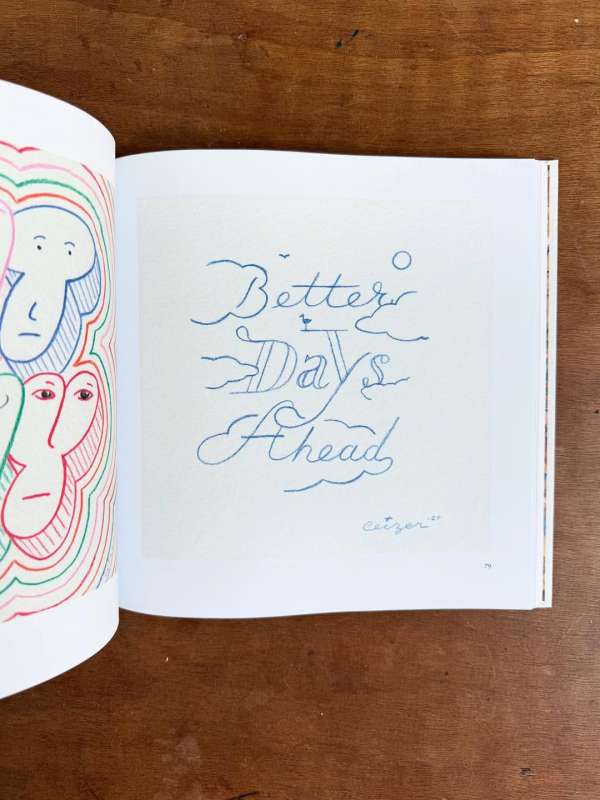 Better
Days
Ahead
Ceizer '21
79